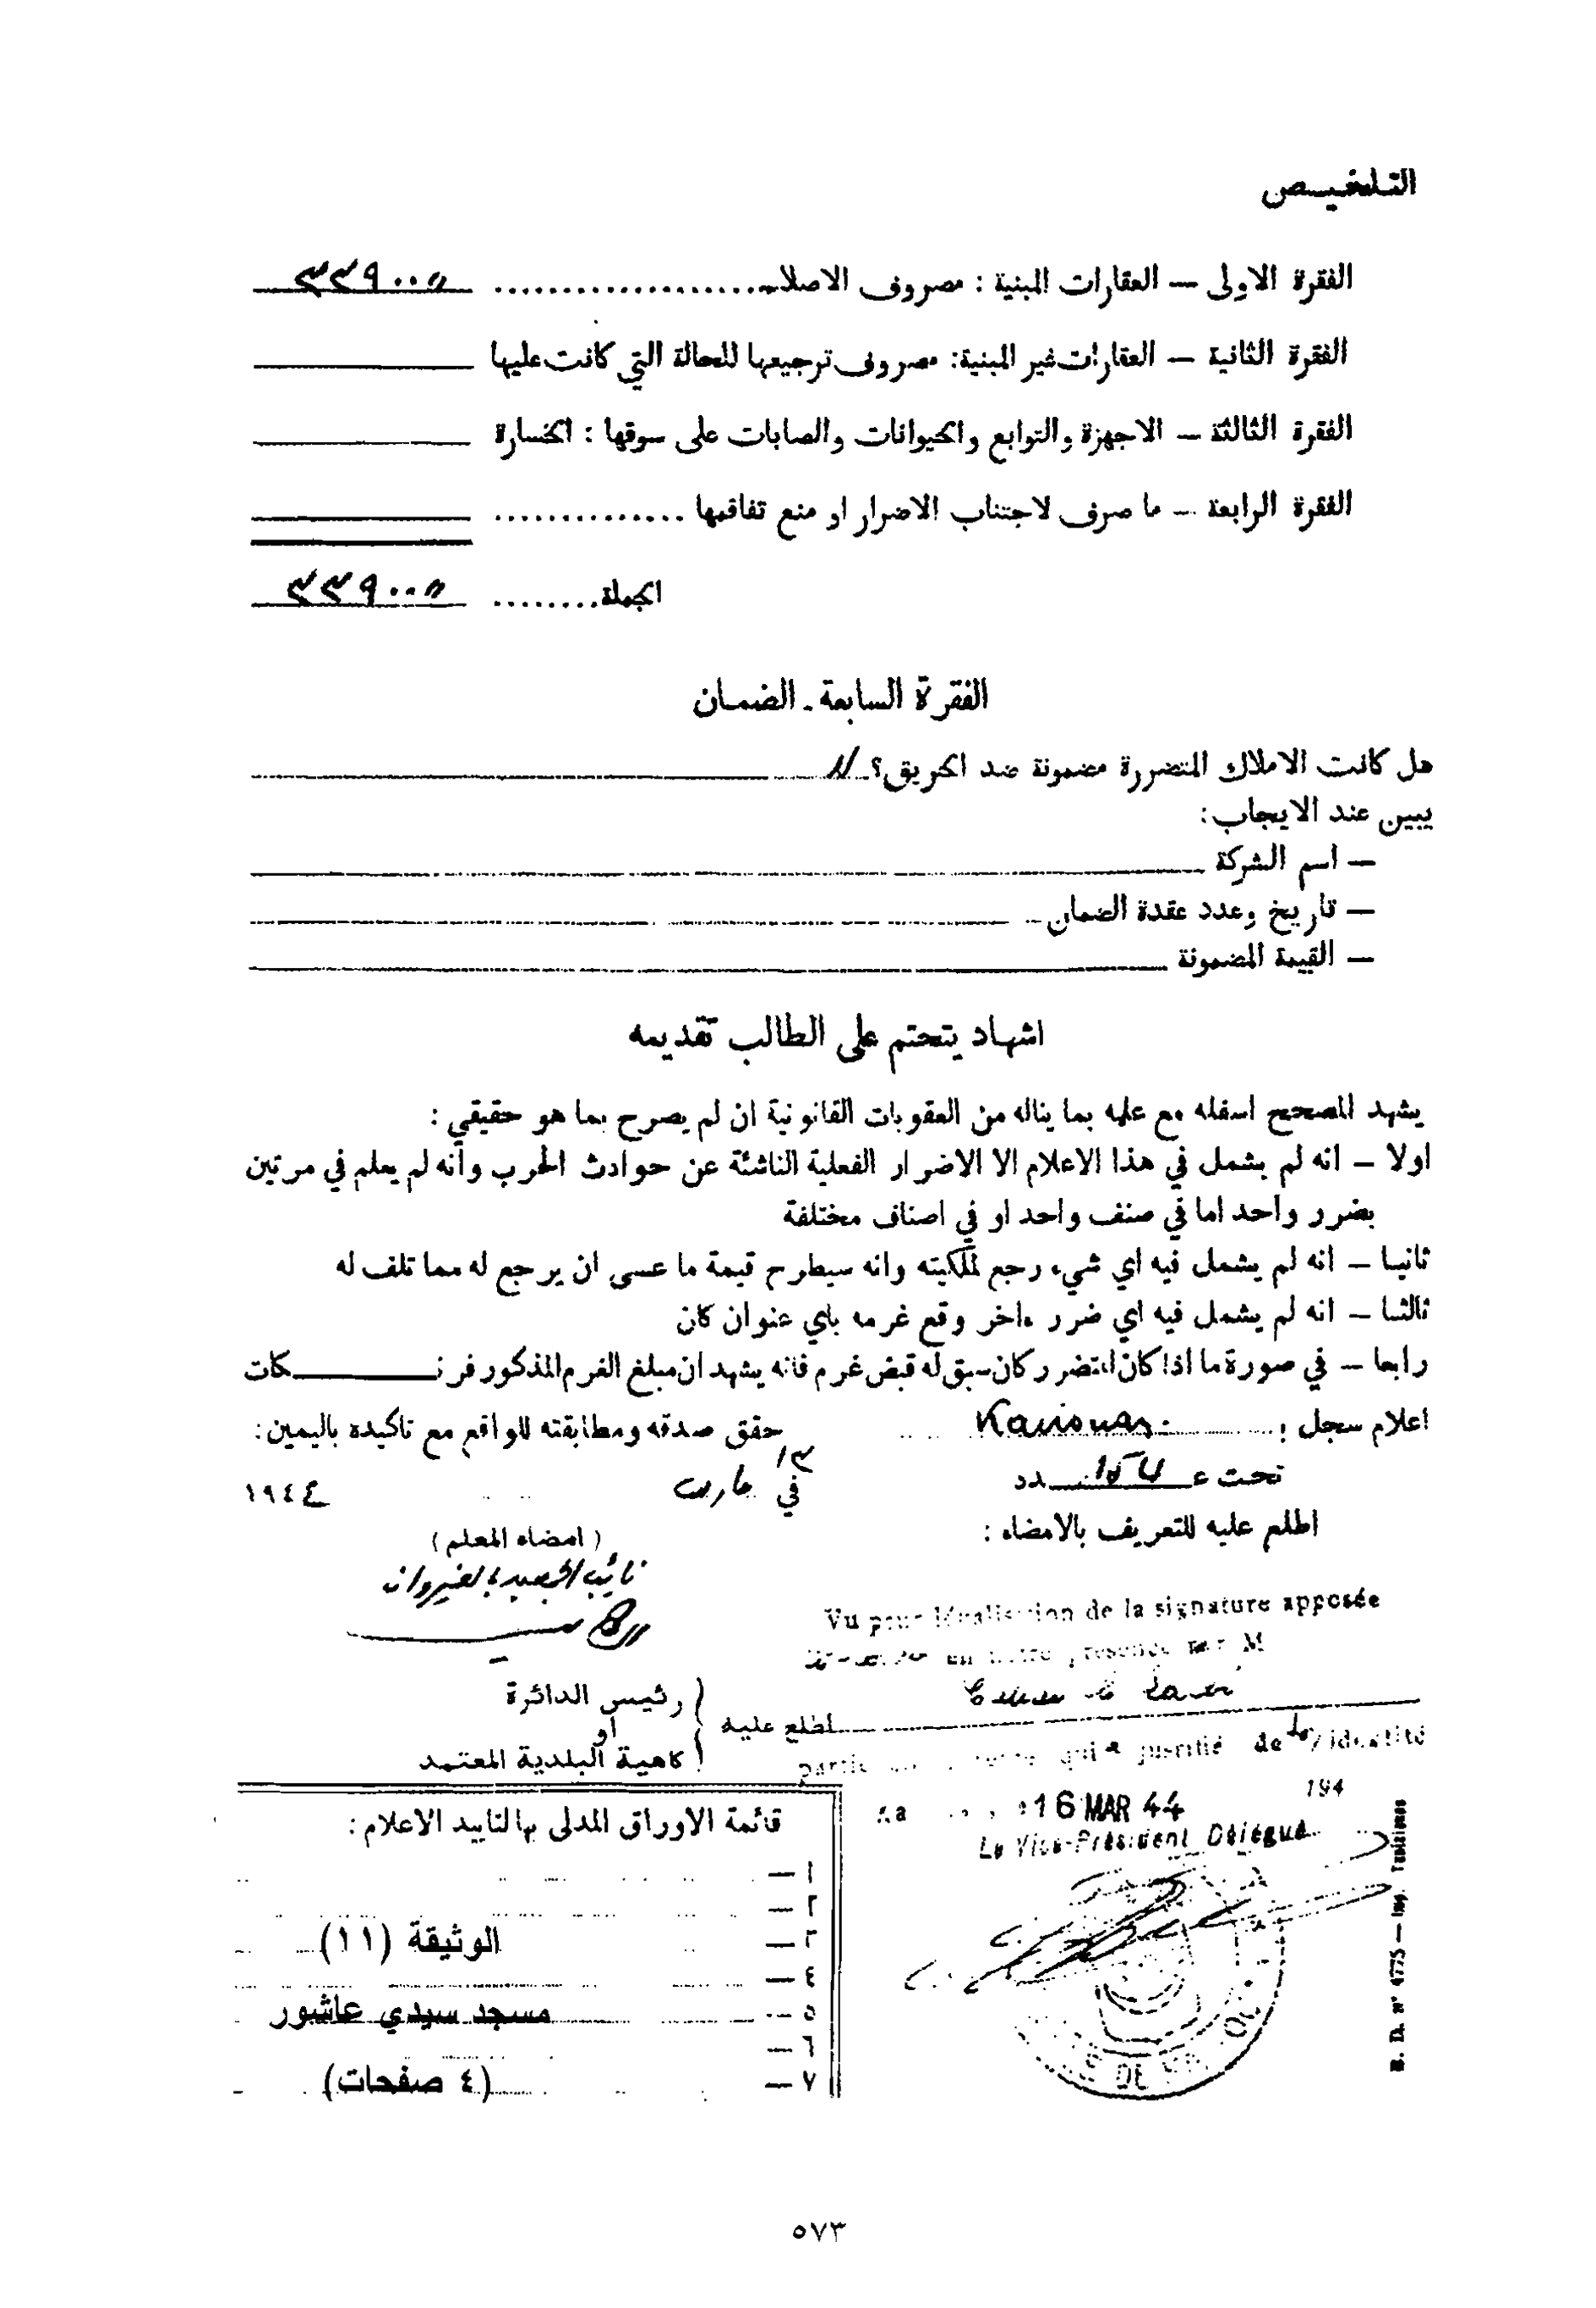 التلخيص
الفقرة الاولى — العقارات المبنية : مصروف الاصلاح.................... ٣٣٩٠٠
الفقرة الثانية — العقارات غير المبنية: مصروف ترجيعها للحالة التي كانت عليها
الفقرة الثالثة — الاجهزة والتوابع والحيوانات والصابات على سوقها : الخسارة
الفقرة الرابعة — ما صرف لاجتناب الاضرار او منع تفاقمها ..............
الجملة........ ٣٣٩٠٠
الفقرة السابعة - الضمان
هل كانت الاملاك المتضررة مضمونة ضد الحريق؟ لا
يبين عند الايجاب:
— اسم الشركة
— تاريخ وعدد عقدة الضمان
— القيمة المضمونة
اشهاد يتحتم على الطالب تقديمه
يشهد المصحح اسفله مع علمه بما يناله من العقوبات القانونية ان لم يصرح بما هو حقيقي :
اولا — انه لم يشمل في هذا الاعلام الا الاضرار الفعلية الناشئة عن حوادث الحرب وانه لم يعلم في مرتين
بضرر واحد اما في صنف واحد او في اصناف مختلفة
ثانيا — انه لم يشمل فيه اي شيء رجع لملكيته وانه سيطرح قيمة ما عسى ان يرجع له مما تلف له
ثالثا — انه لم يشمل فيه اي ضرر ءاخر وقع غرمه باي عنوان كان
رابعا — في صورة ما اذا كان المتضرر كان سبق له قبض غرم فانه يشهد ان مبلغ الغرم المذكور فرنـــكات
اعلام سجل بـ Kairouan
تحت عـــدد
حقق صدقه ومطابقته للواقع مع تاكيده باليمين:
في ١٣ مارس ١٩٤٤
اطلع عليه للتعريف بالامضاء :
(امضاء المعلم)
نائب الجمعية بالقيروان
Vu pour légalisation de la signature apposée
en notre présence par M
اطلع عليه
رئيس الدائرة
او
كاهية البلدية المعتمد
qui a justifié de s/identité
194
16 MAR 44
Le Vice-Président Délégué
قائمة الاوراق المدلى بها لتاييد الاعلام:
١ —
٢ —
٣ — الوثيقة (١١)
٤ —
٥ — مسجد سيدي عاشور
٦ —
٧ — (٤ صفحات)
B. D. n° 4775 — Imp. Tunisienne
٥٧٣